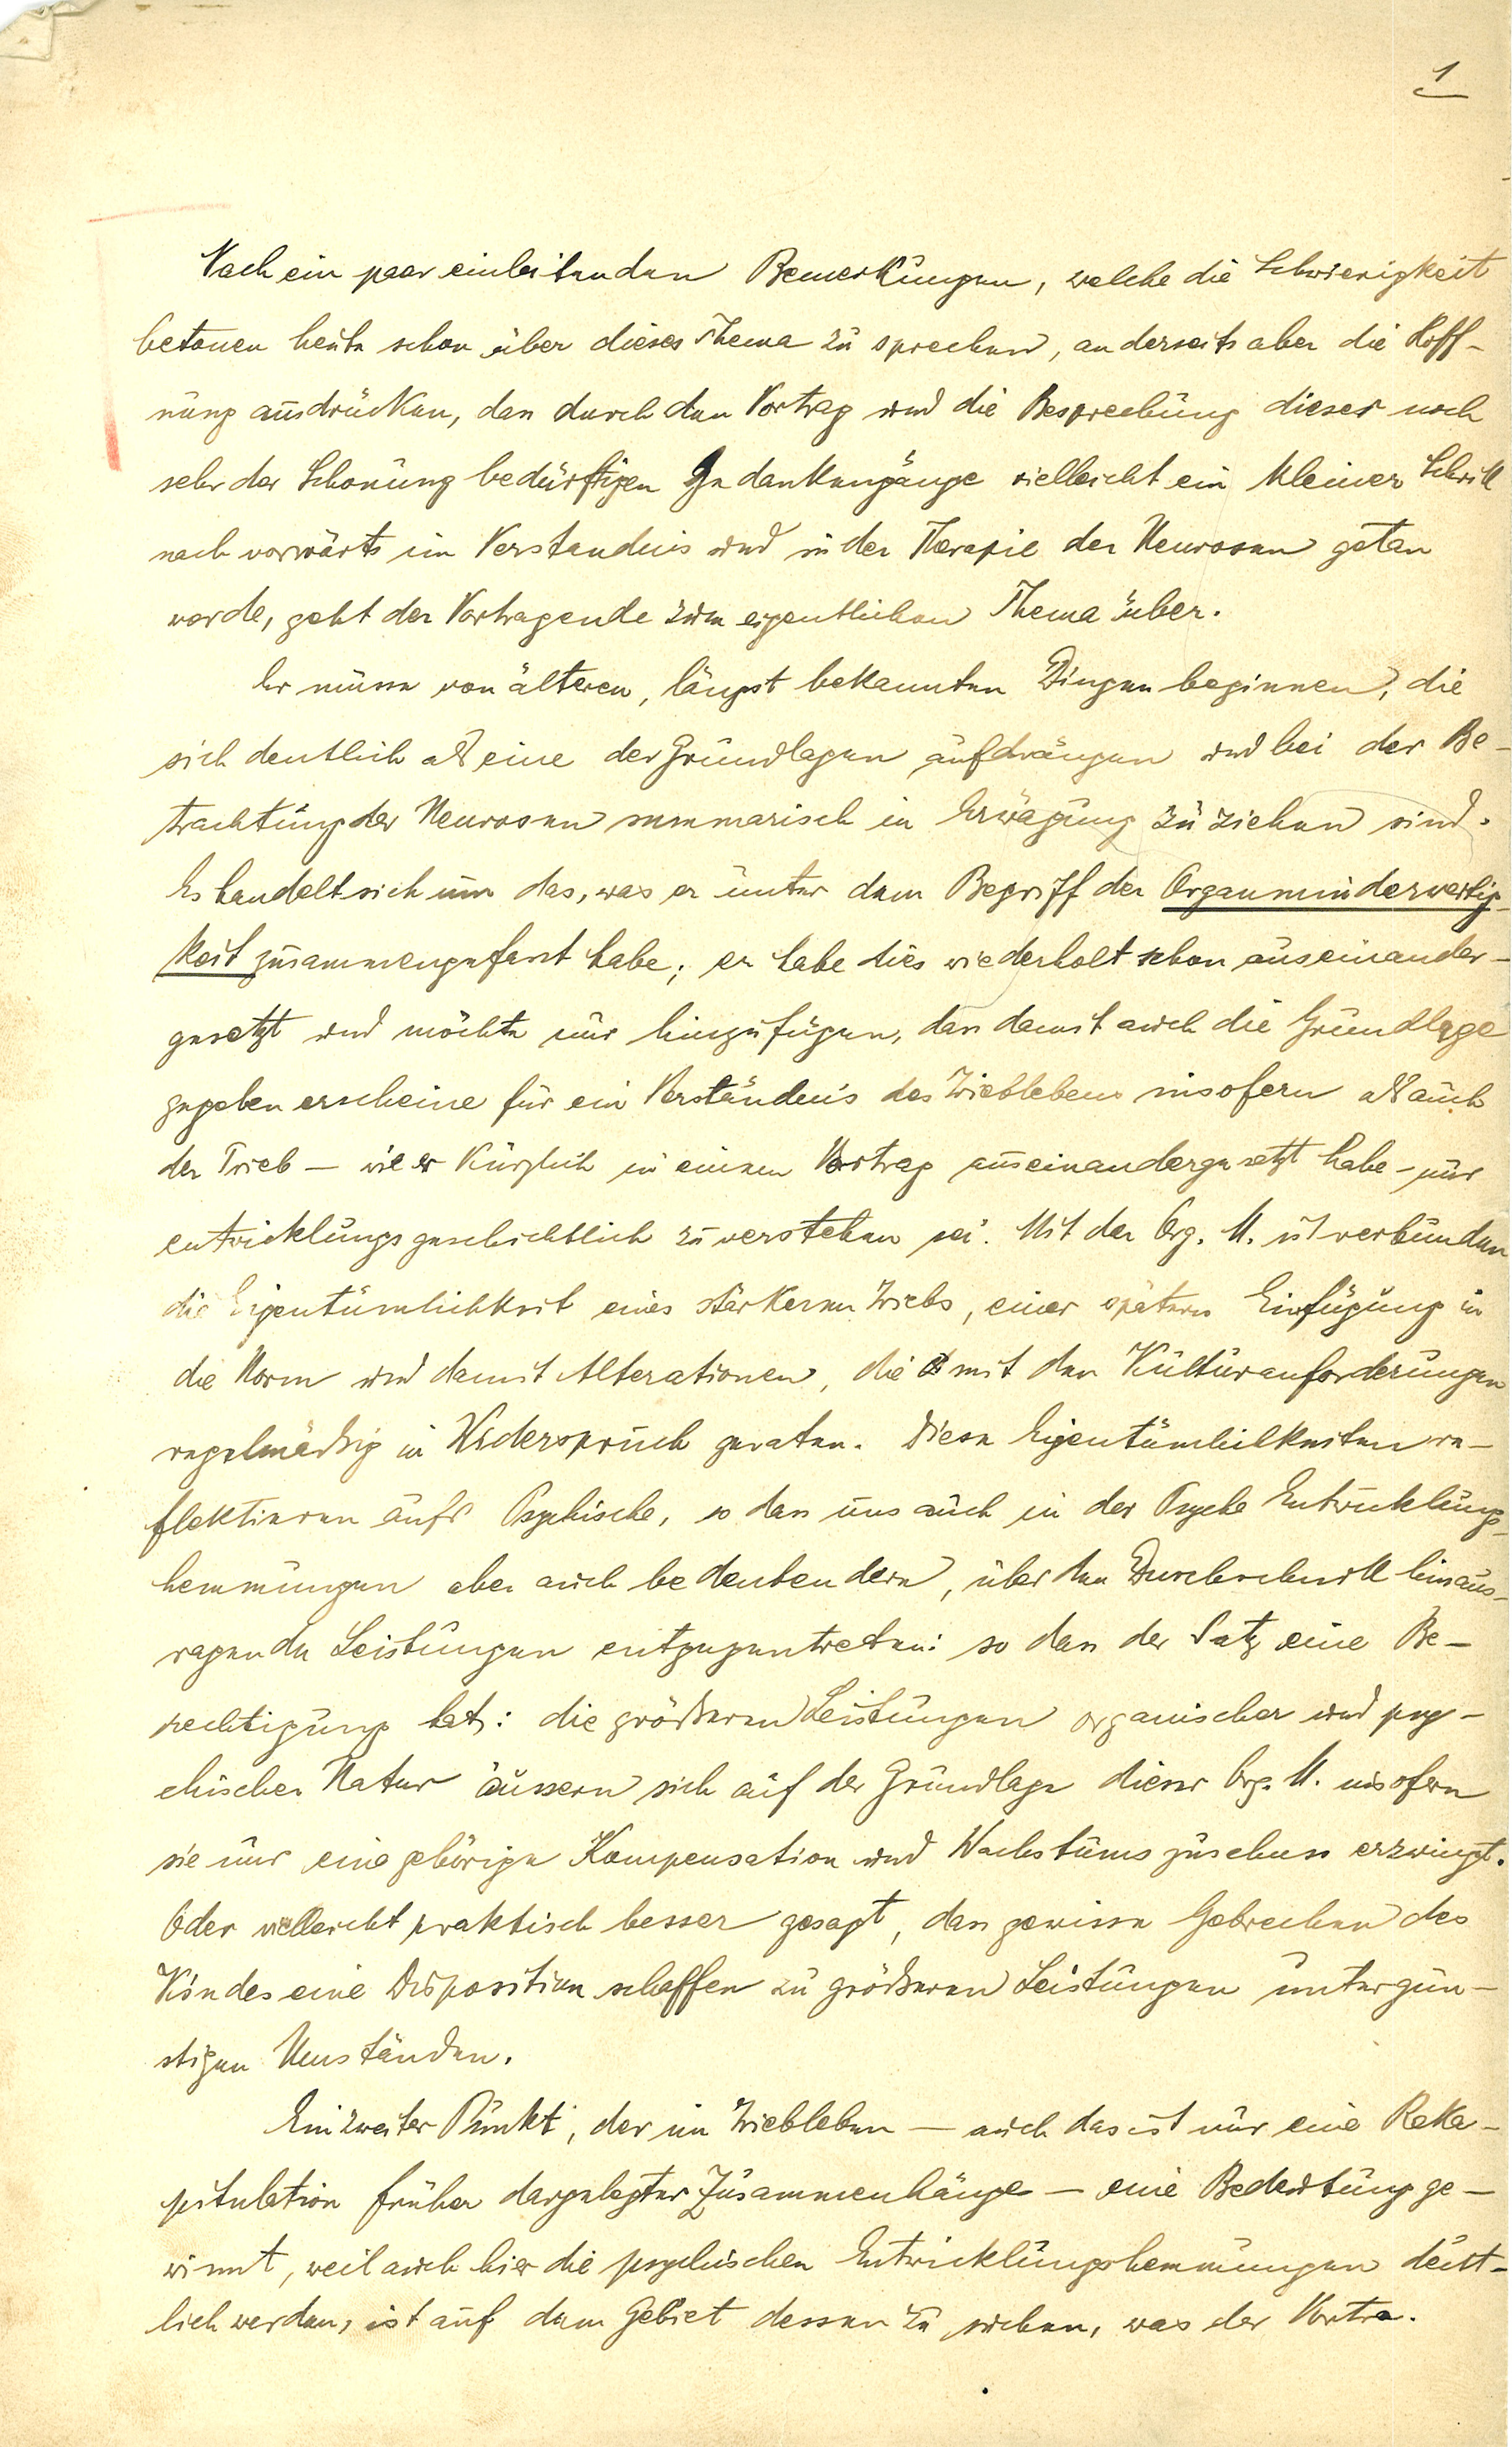 1
Nach ein paar einleitenden Bemerkungen, welche die Schwierigkeit
betonen heute schon über dieses Thema zu sprechen, anderseits aber die Hoff-
nung ausdrücken, dass durch den Vortrag und die Besprechung dieser noch
sehr der Schonung bedürftigen Gedankengänge vielleicht ein kleiner Schritt
nach vorwärts im Verständnis und in der Therapie der Neurosen getan
werde, geht der Vortragende zum eigentlichen Thema über.
Er müsse von älteren, längst bekannten Dingen beginnen, die
sich deutlich als eine der Grundlagen aufdrängen und bei der Be-
trachtung der Neurosen summarisch in Erwägung zu ziehen sind.
Es handelt sich um das, was er unter dem Begriff der Organminderwertig-
keit zusammengefasst habe; er habe dies wiederholt schon auseinander-
gesetzt und möchte nur hinzufügen, dass damit auch die Grundlage
gegeben erscheine für ein Verständnis des Trieblebens insofern als auch
der Trieb — wie er kürzlich in einem Vortrag auseinandergesetzt habe – nur
entwicklungsgeschichtlich zu verstehen sei. Mit der Org. M. ist verbunden
die Eigentümlichkeit eines stärkeren Triebs, einer spätern Einfügung in
die Norm und damit Alterationen, die mit den Kulturanforderungen
regelmäßig in Widerspruch geraten. Diese Eigentümlichkeiten re-
flektieren aufs Psychische, so dass uns auch in der Psyche Entwicklungs-
hemmungen aber auch bedeutendere, über den Durchschnitt hinaus-
ragende Leistungen entgegentreten: so dass der Satz eine Be-
rechtigung hat: die größeren Leistungen organischer und psy-
chischer Natur äussern sich auf der Grundlage dieser Org. M. insofern
sie nur eine gehörige Kompensation und Wachstumszuschuss erzwingt.
Oder vielleicht praktisch besser gesagt, dass gewisse Gebrechen des
Kindes eine Disposition schaffen zu größeren Leistungen unter gün-
stigen Umständen.
Ein zweiter Punkt, der im Triebleben — auch das ist nur eine Reka-
pitulation früher dargelegter Zusammenhänge — eine Bedeutung ge-
winnt, weil auch hier die psychischen Entwicklungshemmungen deut-
lich werden, ist auf dem Gebiet dessen zu suchen, was der Vortra-